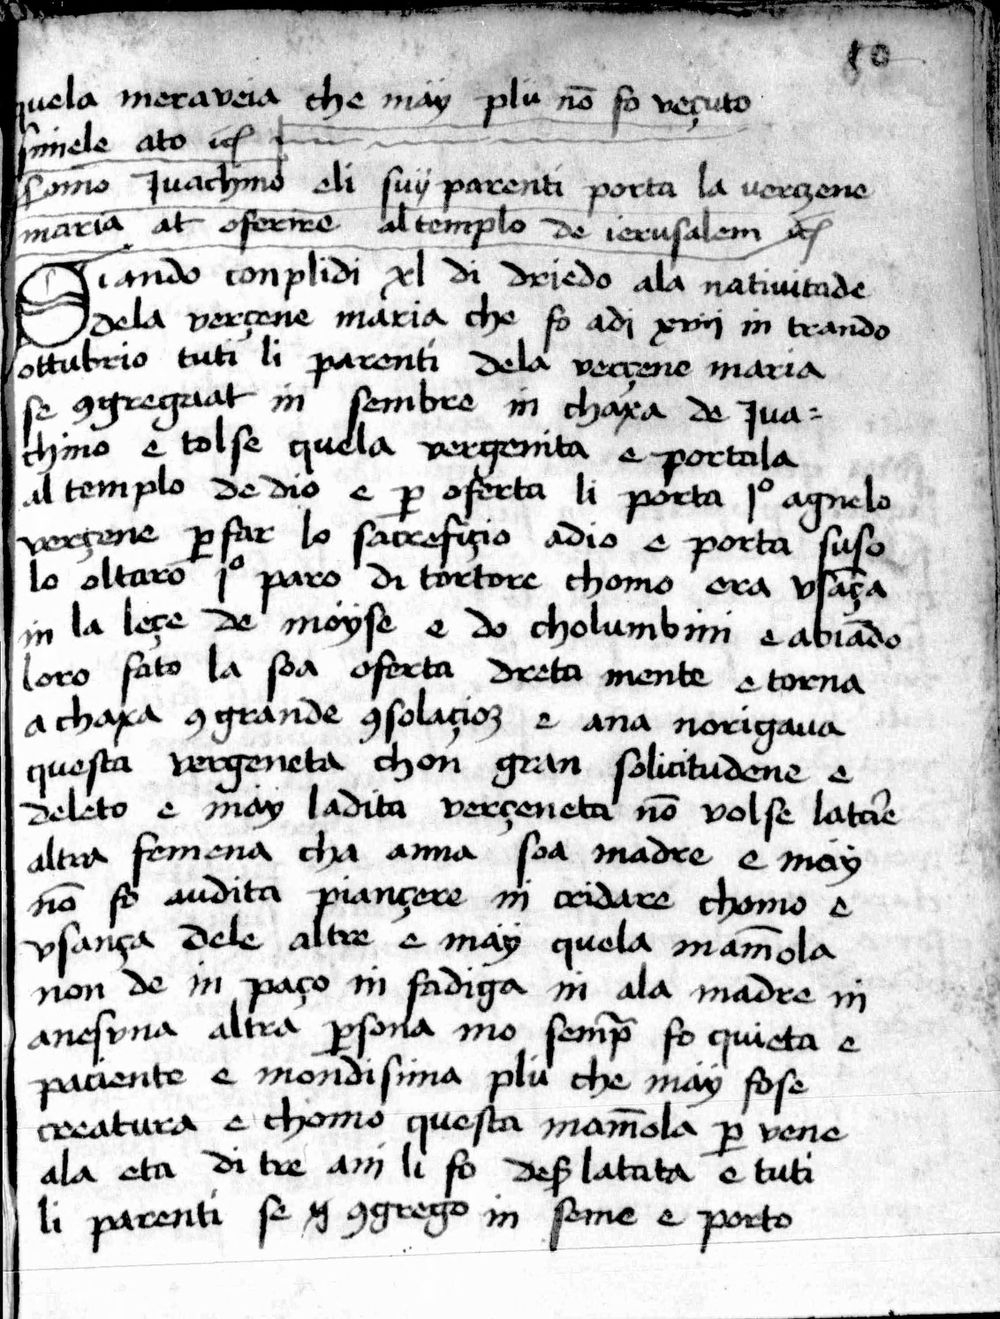 10
quela meraveia che may plu nō fo veçuto
simele ato
Como Ivachino eli suy parenti porta la vergene
maria at oferire al templo de ierusalem
Siando conplidi xl di driedo ala nativitade
dela verçene maria che fo adi xviiii in trando
ottubrio tuti li parenti dela verçene maria
se ꝯgregaat in sembre in chaxa de Iva=
chino e tolse quela vergenita e portala
al templo de dio e ꝑ oferta li porta Iº agnelo
verçene ꝑ far lo sacrefiçio adio e porta suso
lo oltaro Iº paro di tortore chomo era vsāça
in la leçe de moyse e do cholumbini e abiādo
loro fato la soa oferta dreta mente e torna
a chaxa ꝯ grande ꝯsolaçioꝫ e ana norigava
questa vergeneta chon gran solicitudene e
deleto e may ladita verçeneta nō volse latare
altra femena cha anna soa madre e may
nō fo audita piançere ni cridare chomo e
vsança dele altre e may quela mam̄ola
non de in paço ni fadiga ni ala madre ni
anesvna altra ꝑsona mo semp̄ fo quieta e
paciente e mondisima plu che may fose
creatura e chomo questa mam̄ola ꝑ vene
ala eta di tre ani li fo desp̄ latata e tuti
li parenti se ꝯgrego in seme e porto